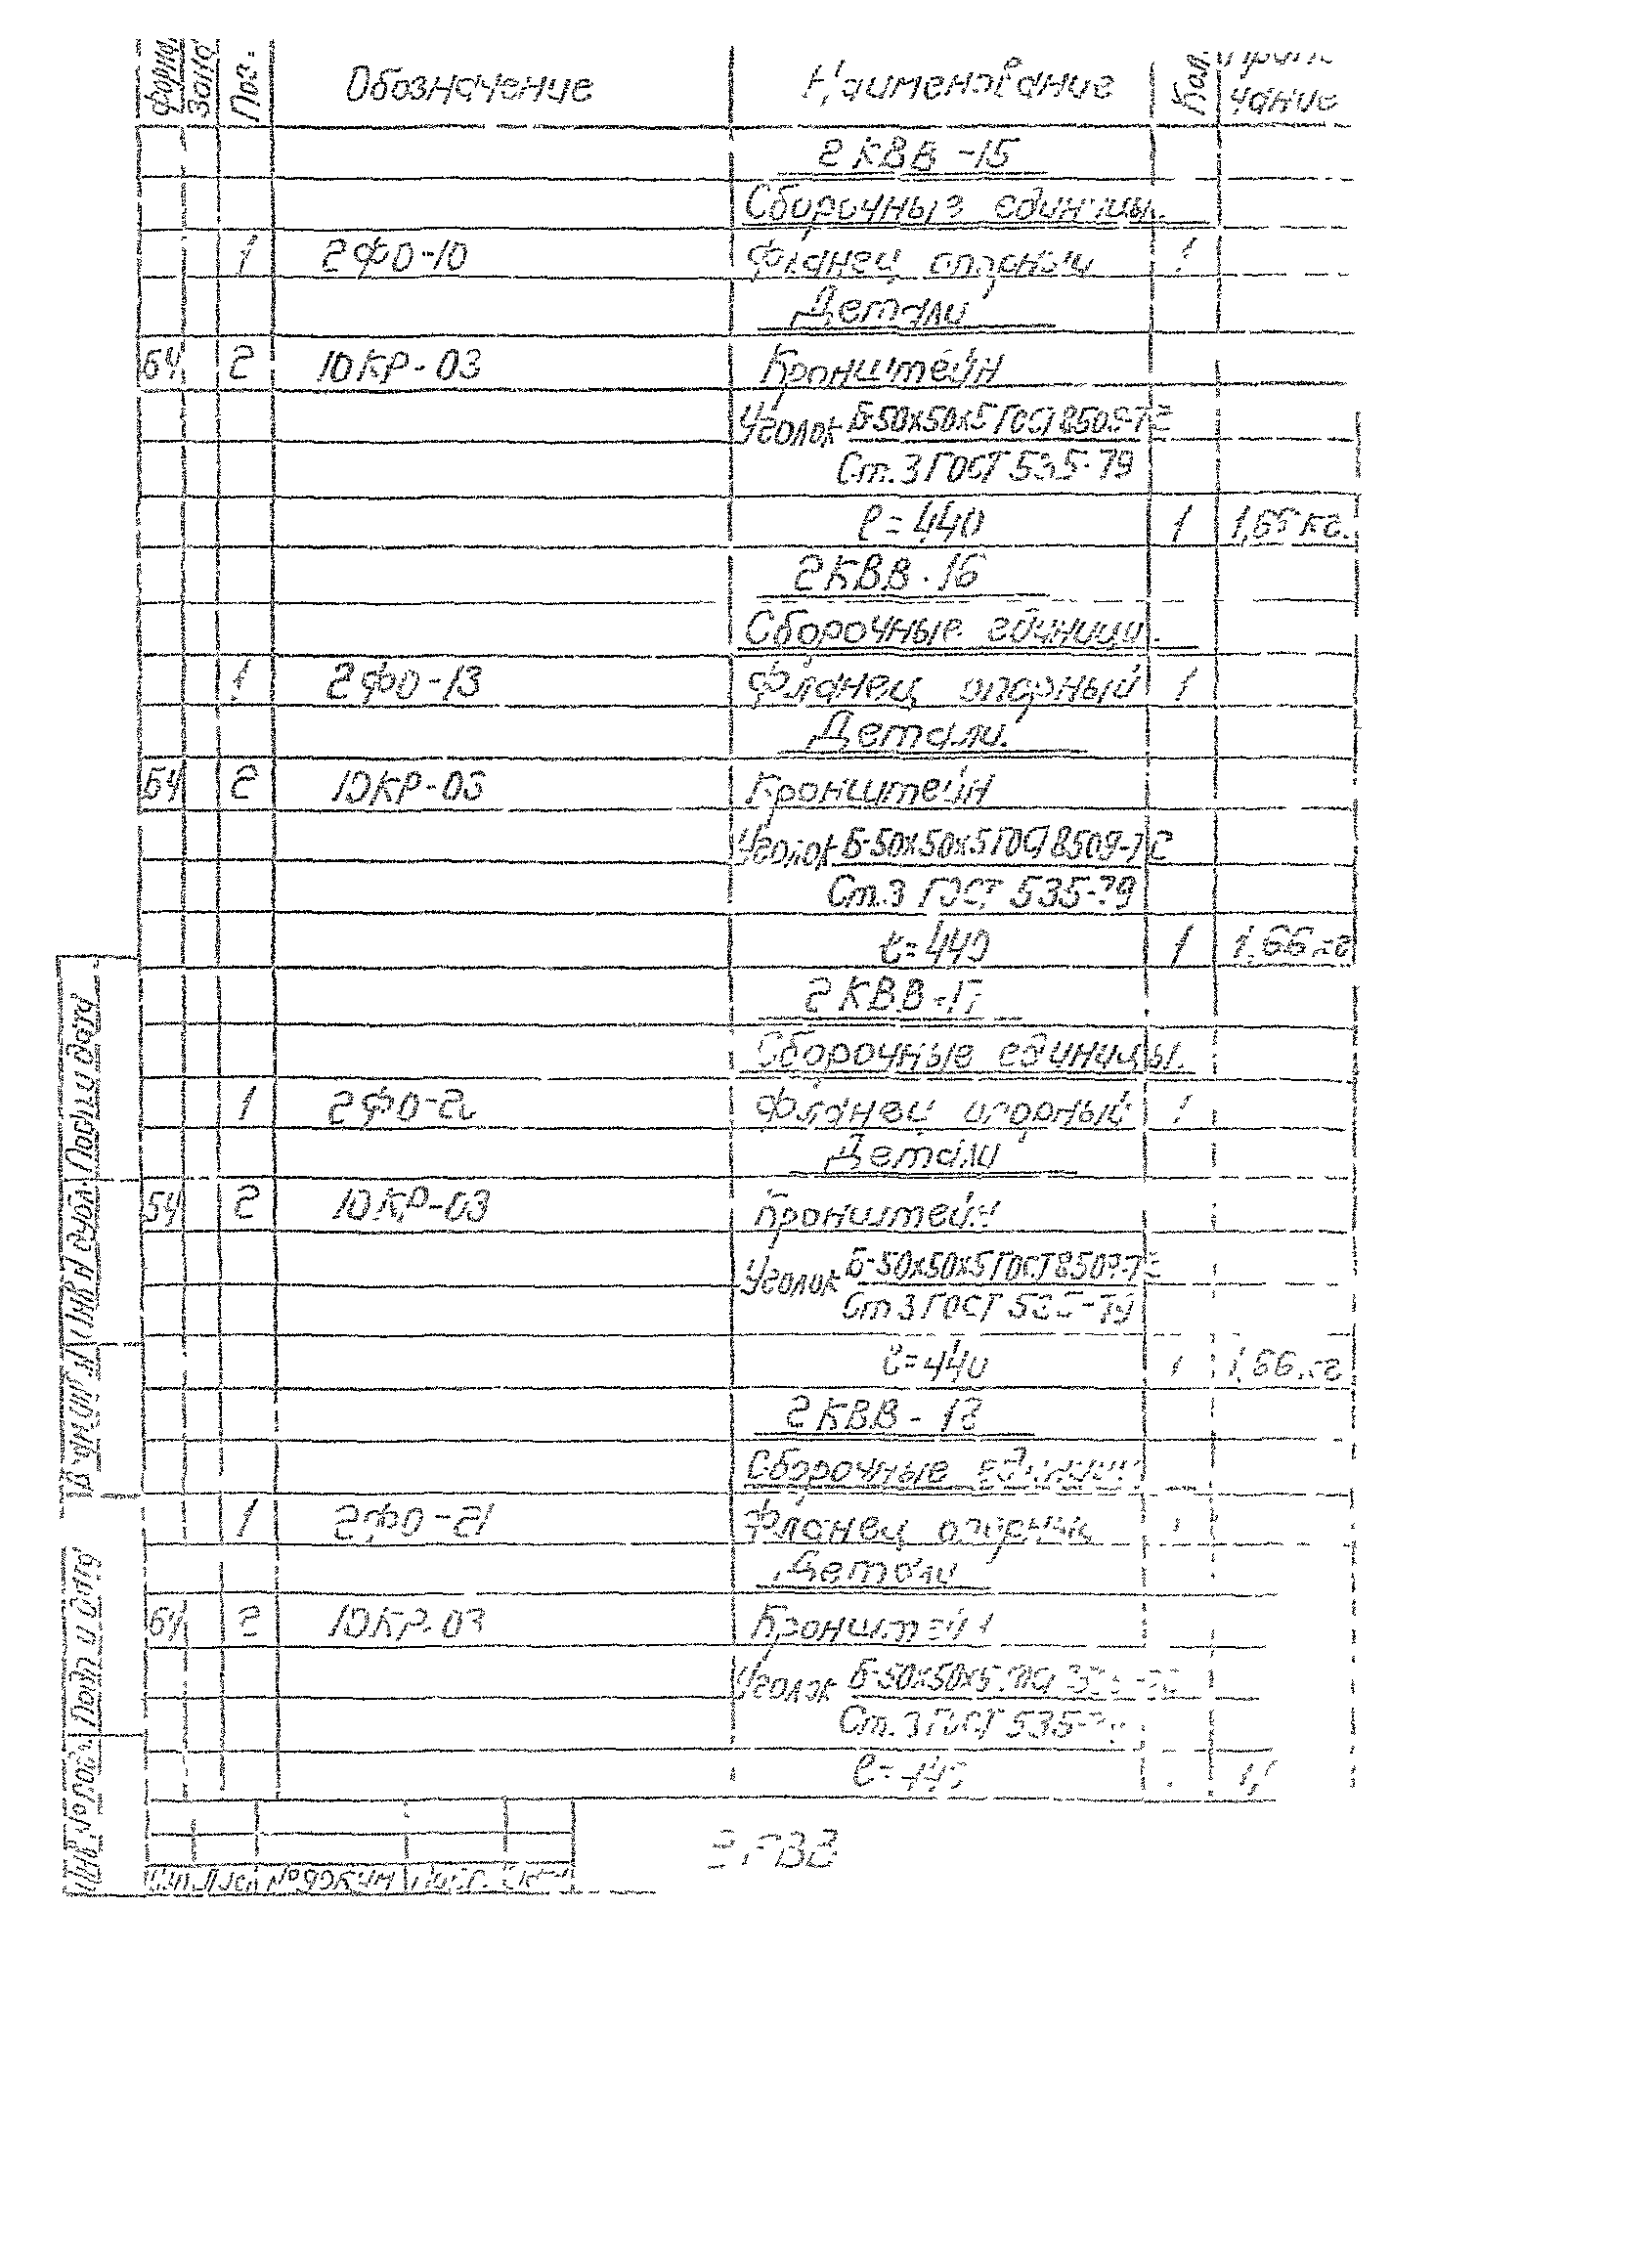 Зона Поз. Обозначение Наименование Кол. чание
2КВВ-15
Сборочные единицы.
1 2ФО-10 Фланец опорный 1
Детали
БЧ 2 10КР-03 Кронштейн
Уголок Б-50х50х5 ГОСТ 8509-72
Ст.3 ГОСТ 535-79
ℓ=440 1 кг.
2КВВ-16
Сборочные единицы.
1 2ФО-13 Фланец опорный 1
Детали.
БЧ 2 10КР-03 Кронштейн
Уголок Б-50х50х5 ГОСТ 8509-72
Ст.3 ГОСТ 535-79
ℓ=440 1 1,66 кг
2КВВ-17
Сборочные единицы.
1 Фланец опорный 1
Детали
БЧ 2 10КР-03 Кронштейн
Уголок Б-50х50х5 ГОСТ 8509-72
Ст3 ГОСТ 535-79
ℓ=440 1 1,66 кг
2КВВ-18
Сборочные единицы
1 2ФО-21 Фланец опорный
Детали
БЧ 2 10КР-03 Кронштейн
Уголок Б-50х50х5
Ст.3 ГОСТ 535-
ℓ=
Лист № докум
Инв.№ подл. Подп и дата Взам инв.№ Инв № дубл. Подп и дата